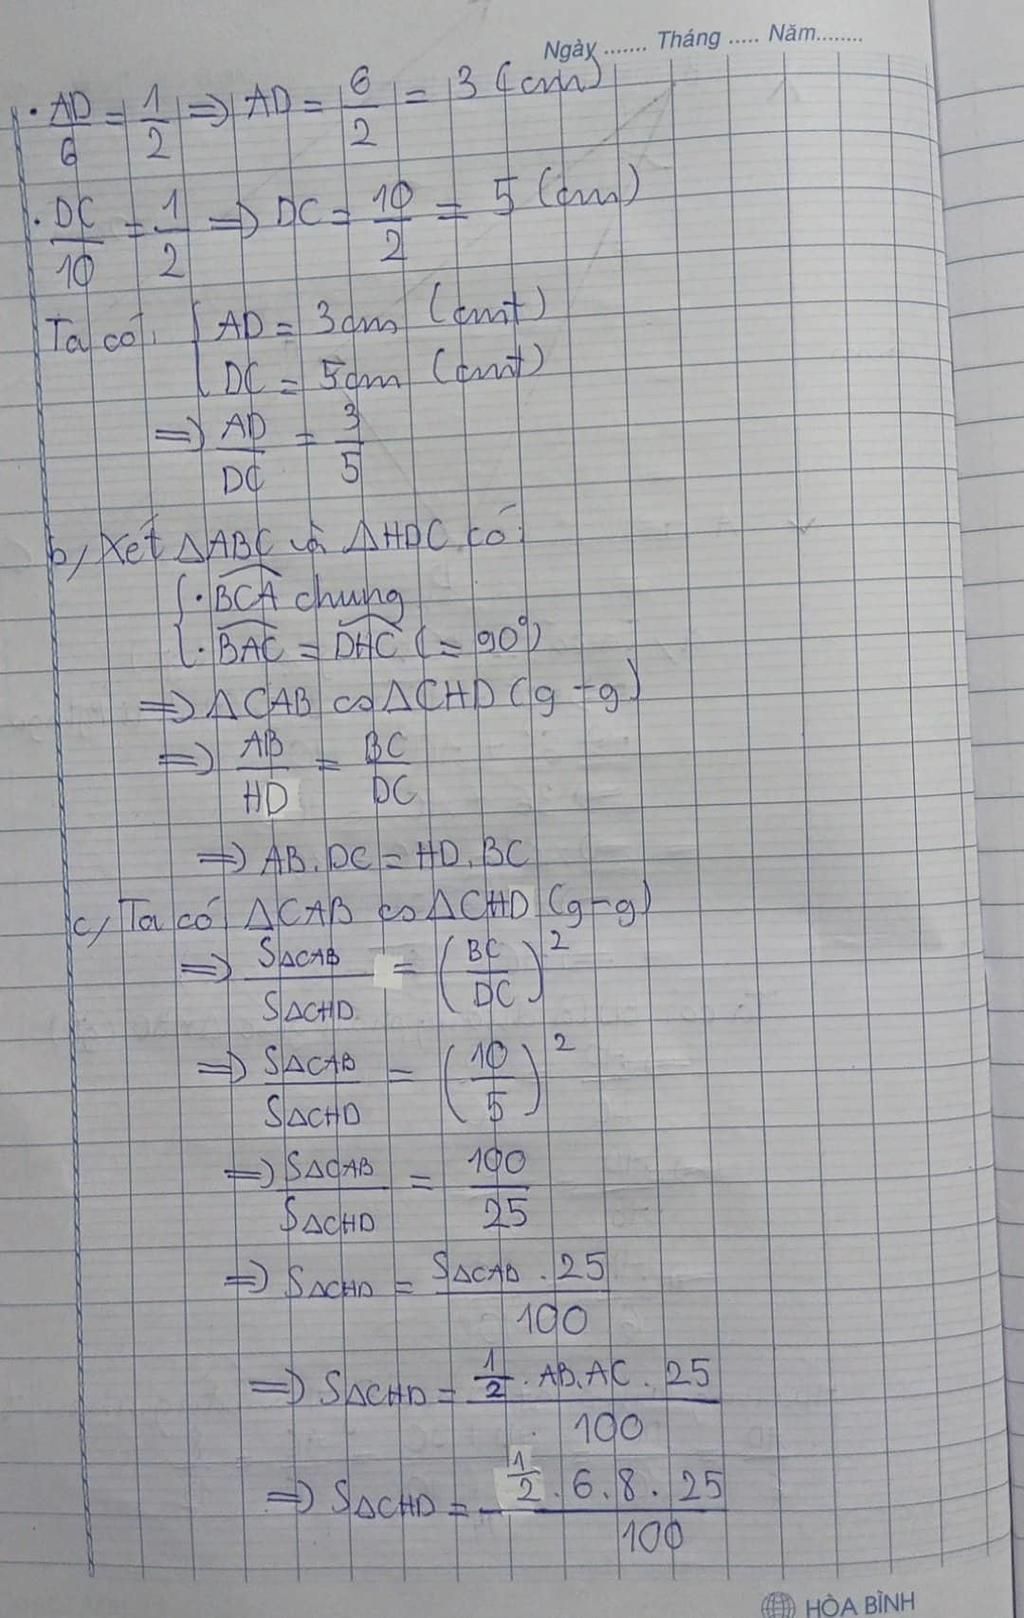 Ngày ....... Tháng ..... Năm........
• AD/6 = 1/2 => AD = 6/2 = 3 (cm)
• DC/10 = 1/2 => DC = 10/2 = 5 (cm)
Ta có: { AD = 3cm (cmt)
DC = 5cm (cmt)
=> AD/DC = 3/5
b, Xét △ABC và △HDC có:
{ • BCA chung
• BAC = DHC (= 90°)
=> △CAB ∽ △CHD (g-g)
=> AB/HD = BC/DC
=> AB.DC = HD.BC
c, Ta có △CAB ∽ △CHD (g-g)
=> S△CAB/S△CHD = (BC/DC)²
=> S△CAB/S△CHD = (10/5)²
=> S△CAB/S△CHD = 100/25
=> S△CHD = S△CAB . 25/100
=> S△CHD = 1/2 . AB.AC . 25/100
=> S△CHD = 1/2 . 6 . 8 . 25/100
HÒA BÌNH